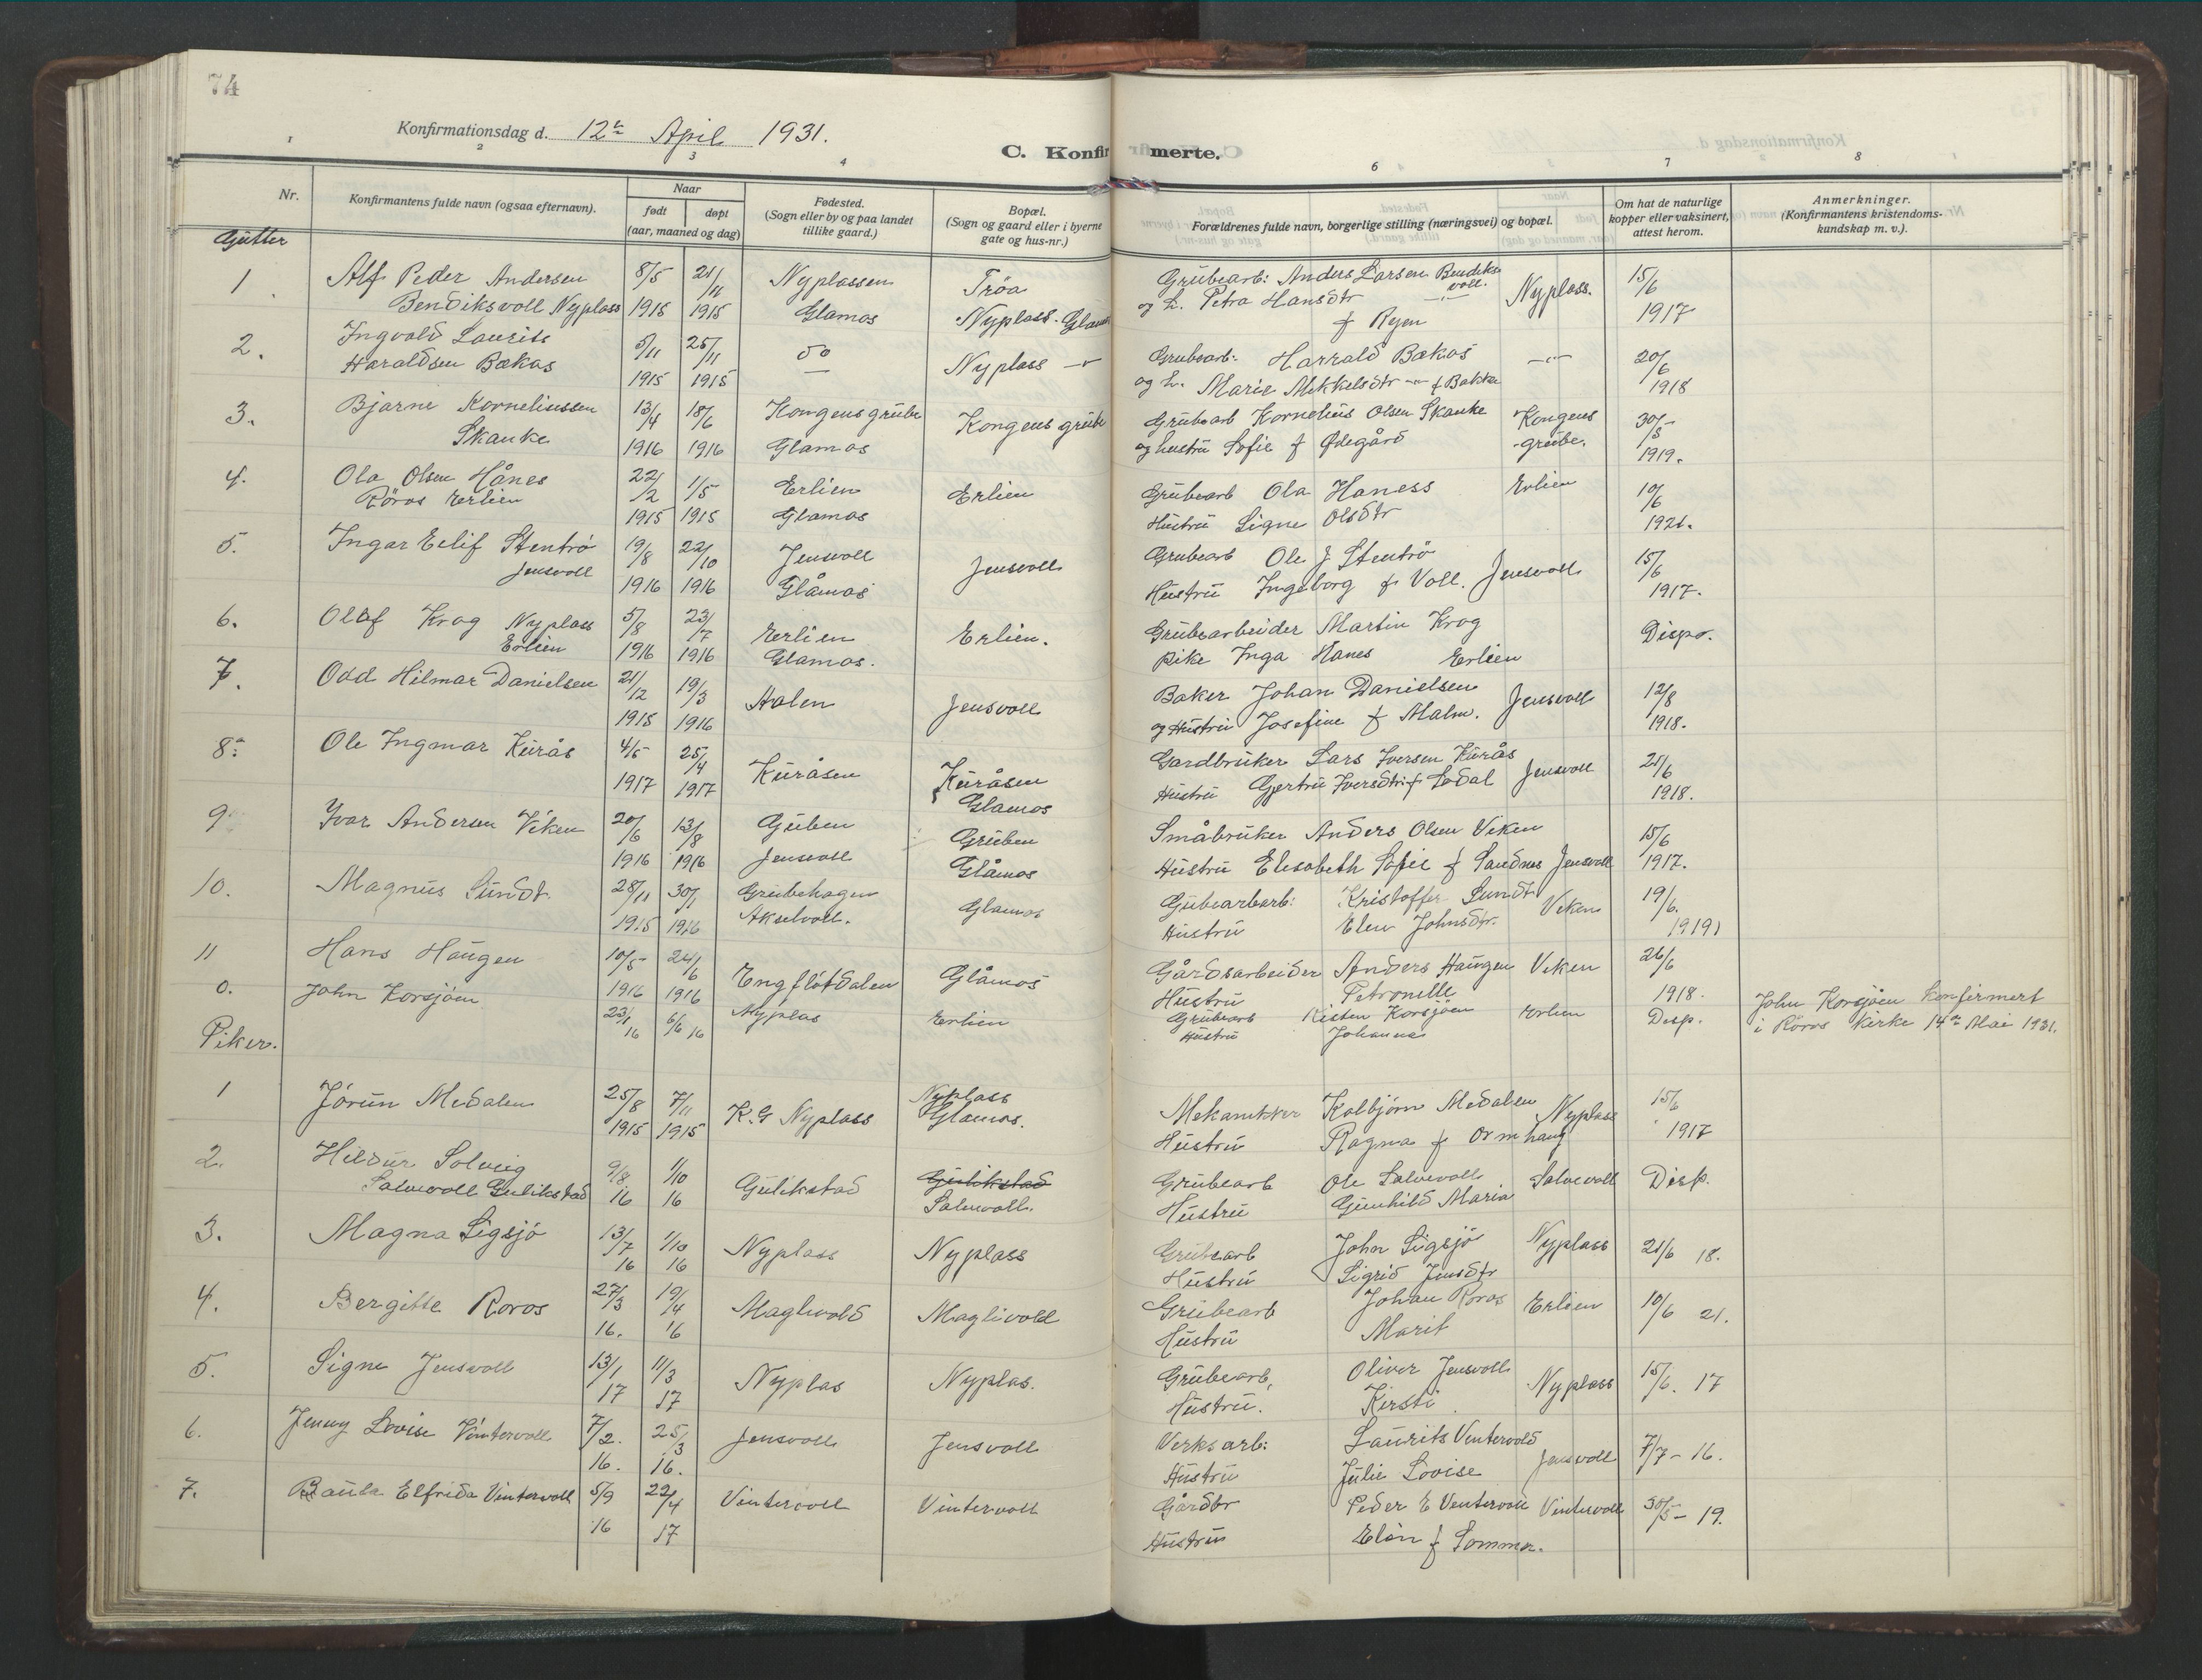 74
Konfirmationsdag d. 12te April 1931.
C. Konfirmerte.
1 2 3 4 6 7 8
Nr.
Konfirmantens fulde navn (ogsaa efternavn).
Naar
født døpt
(aar, maaned og dag)
Fødested.
(Sogn eller by og paa landet
tillike gaard.)
Bopæl.
(Sogn og gaard eller i byerne
gate og hus-nr.)
Forældrenes fulde navn, borgerlige stilling (næringsvei) og bopæl.
Om hat de naturlige
kopper eller vaksinert,
attest herom.
Anmerkninger.
(Konfirmantens kristendoms-
kundskap m. v.).
Gutter
1 Alf Peder Andersen 8/5 21/11 Nyplassen Trøa Grubearb: Anders Larsen Bendiks voll. Nyplass. 15/6
Bendiksvoll Nyplass 1915 1915 Glamos Nyplass. Glamos og h. Petra Hansdtr —"— f Ryen 1917
2. Ingvald Laurits 5/11 25/11 do Nyplass —"— Grubearb: Harrald Bækos —"— 20/6
Haraldsen Bækos 1915 1915 — og h. Marie Mikkelsdtr —"— f Bakke 1918
3. Bjarne Korneliussen 13/4 18/6 Kongensgrube Kongens grube Grubearb Kornelius Olsen Skanke Kongens 30/5
Skanke 1916 1916 Glamos og hustru Sofie f Ødegård grube. 1919.
4. Ola Olsen Hånes 22/2 1/5 Erlien Erlien Grubearb Ola Haness Erlien 10/6
Röros Erlien 1915 1915 Glamos Hustru Signe Olsdtr 1921.
5. Ingar Eilif Stentrö 19/8 22/10 Jensvoll Jensvoll Grubearb Ole J Stentrö Jensvoll 15/6
Jensvoll 1916 1916 Glåmos Hustru Ingeborg f Voll. 1917.
6. Olaf Krog Nyplass 5/8 23/7 Erlien Erlien. Grubearbeider Martin Krog Dispo.
Erlien 1916 1916 Glamos. Pike Inga Hanes Erlien
7. Odd Hilmar Danielsen 21/12 19/3 Halen Jensvoll Baker Johan Danielsen Jensvoll 12/8
1915 1916 og Hustru Josefine f Malm. 1918.
8. Ole Ingmar Kurås 4/5 25/4 Kuråsen Kuråsen Gardbruker Lars Iversen Kurås Jensvoll 21/6
1917 1917 Glamos Hustru Gjertru Iversdtr f Sodal 1918.
9 Ivar Andersen Viken 20/6 13/8 Guben Gruben Småbruker Anders Olsen Viken 15/6
1916 1916 Jensvoll Glåmos Hustru Elesabeth Sofie f Sandnes Jensvoll 1917.
10. Magnus Sundt. 28/11 30/1 Grubehagen Glamos Gubearbarb: Kristoffer Sundt Viken 19/6.
1915 1916 Akselvoll. Hustru Elen Johnsdtr. 1919)
11 Hans Haugen 10/5 24/6 Engflötdalen Glåmos Gårdsarbeider Anders Haugen Viken 26/6
1916 1916 Hustru Petronelle 1918.
0. John Korsjöen 23/1 16 6/6 16 Nyplas Erlien Grubearb Kisten Korsjöen Erlien Disp. John Korsjöen konfirmert
Hustru Johanna i Röros kirke 14de Mai 1931.
Piker.
1 Jörun Medalen 25/8 7/11 K.G Nyplass Nyplass Mekanikker Kolbjörn Medalen Nyplass 15/6
1915 1915 Glamos. Hustru Ragna f Ormhaug 1917
2. Hildur Solveig 9/8 1/10 Gulikstad Gulikstad Grubearb Ole Salvevoll Salvevoll Disp.
Salvevoll Gulikstad 16 16 Salvevoll. Hustru Gunhild Maria
3. Magna Sigsjö 13/7 1/10 Nyplass Nyplass Grubearb John Sigsjö Nyplass 21/6 18.
16 16 Hustru Sigrid Jensdtr
4. Bergitte Roros 27/3 19/4 Maglivold Maglivold Grubearb Johan Roros Erlien 10/6 21.
16. 16 Hustru Marit
5. Signe Jensvoll 13/1 11/3 Nyplas Nyplas. Grubearb, Oliver Jensvoll Nyplass 15/6. 17
17 17 Hustru. Kirsti
6. Jenny Lovise Vintervoll 7/2. 25/3 Jensvoll Jensvoll Verksarb: Laurits Ventervold Jensvoll 7/7 - 16.
16. 16. Hustru Julie Lovise
7. Paula Elfrida Vintervoll 5/9 22/4 Vintervoll Vintervoll Gårdbr Peder E Ventervoll Vintervoll 30/5 - 19.
16 17 Hustru Elön f Somma.